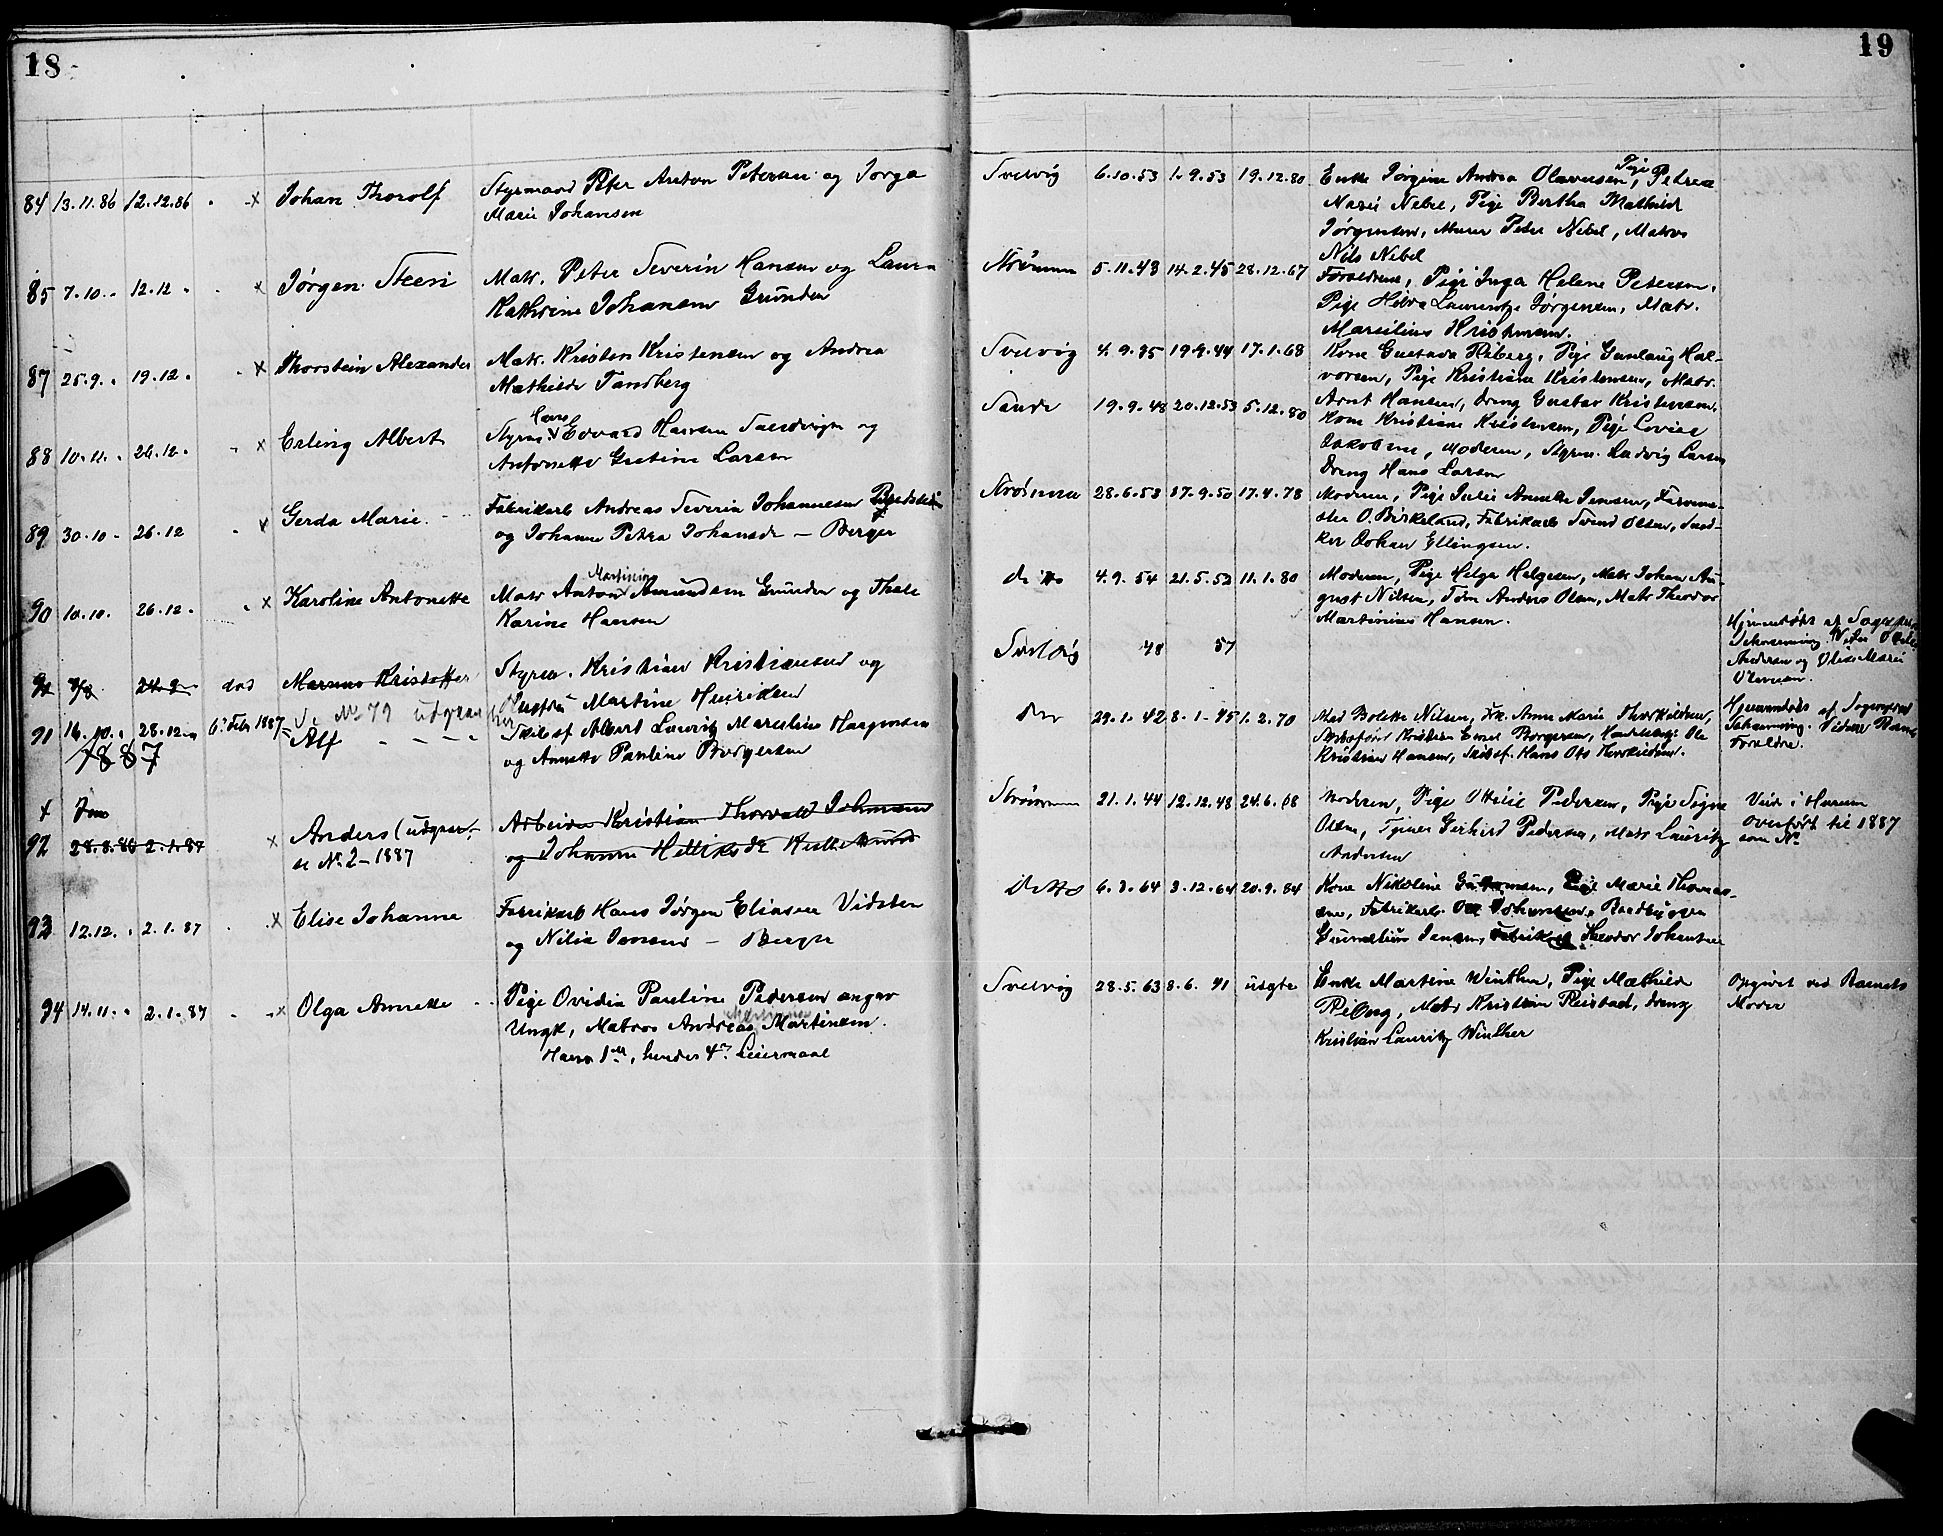 18
84 13.11.86 12.12.86 . x Johan Thorolf Styrmand Peter Anton Petersen og Jorga
Marie Johansen
85 7.10. " 12.12 " . x Jørgen Steen Matr. Peter Severin Hansen og Laura
Kathrine Johansen Grunden
87 25.9. " 19.12. . x Thorstein Alexander Matr. Kristen Kristensen og Andrea
Mathilde Tandberg
88 10.11. " 26.12. . x Erling Albert Styrm. Hans Edvard Hansen og
Antonette Gustine Larsen
89 30.10 - 26.12 . x Gerda Marie Fabrikarb Andreas Severin Johannesen
og Johanne Petra Johansdr - Berger
90 10.10. 26.12. . x Karoline Antonette Matr Anton Martinius Amundsen Grunden og Thale
Karine Hansen
91 24.9 død Marenus Kristoffer Styrm. Kristian Kristiansen og
Se No 79 Hustru Martine Henriksen
91 16.10. " 28.12 6te Febr 1887 Alf Skibsf Albert Lauritz Marselius Haagensen
og Annette Pauline Borgersen
1887
x Jan
92 28.8.86 2.1.87 x Anders (udgaar, Arbeider Kristian Thorvald Johansen
se No 2 - 1887 og Johanne
93 12.12. " 2.1.87 . x Elise Johanne Fabrikarb Hans Jørgen Eliasen Vidsten
og Nilia Jensen - Berger
94 14.11. " 2.1.87 . x Olga Annette Pige Ovidia Pauline Pedersen angav
Ungk, Matros Andreas Martinsen.
Hans 1ste, hendes 4de Leiermaal
19
Svelvig 6.10.53 1.9.53 19.12.80 Enke Jørgine Andrea Olavesen, Pige Petrea
Marie Nebel, Pige Bertha Mathilde
Jørgensen, Murer Peter Nebel, Matros
Nils Nebel
Strømmen 5.11.43 14.2.45 28.12.67 Forældrene, Pige Inga Helene Petersen,
Pige Hilda Laurentze Jørgensen, Matr.
Marselius Kristensen.
Svelvig 4.9.35 19.9.44 17.1.68 Kone Gustava Riberg, Pige Gunlaug Hal-
vorsen, Pige Kristiane Kristensen, Matr.
Arnt Hansen, Dreng Gustav Kristensen.
Sande 19.9.48 20.12.53 5.12.80 Kone Kristiane Kristensen, Pige Lovise
Jakobsen, Moderen, Styrm. Ludvig Larsen
Dreng Hans Larsen
Strømmen 28.6.53 17.9.50 17.4.78 Moderen, Pige Julie Annette Jensen, Farveme-
ster O. Birkeland, Fabrikarb Svend Olsen, Sned-
ker Johan Ellingsen.
ditto 4.9.54 21.5.52 11.1.80 Moderen, Pige Helga Helgesen, Matr Johan Au-
gust Nilsen, Tøm Anders Olsen, Matr Theodor
Martinius Hansen.
Svelvig 48 57 Hjemmedøbt af Sognepræst
Schwenning. Vidne
Andersen og Marie
Do 29.1.42 8.1.45 1.2.70 Mad Bolette Nilsen, Frk. Anne Marie Thorkildsen, Hjemmedøbt af Sognepræst
Kristian Emil Borgersen, Ole Schwenning. Vidne Barnets
Kristian Hansen, Skibsf. Hans Otto Thorkildsen. Forældre.
Strømmen 21.1.44 12.12.48 24.6.68 Moderen, Pige Ottilie Pedersen, Pige Signe
Olsen, Tjener Gerhard Pedersen, Matr Lauritz
Andersen
Overført til 1887
som No
Ditto 6.3.64 3.12.64 20.9.84 Kone Nikoline, Pige Marie Thomas-
sen, Fabrikarb. Ole Johansen
Jensen, Fabrikarb Theodor Johansen
Svelvig 28.5.63 8.6.41 usgte Enke Martine Winther, Pige Mathilde
Riberg, Matr Kristian Reistad, Dreng
Kristian Lauritz Winther
Opgivet ved Barnets
Moder